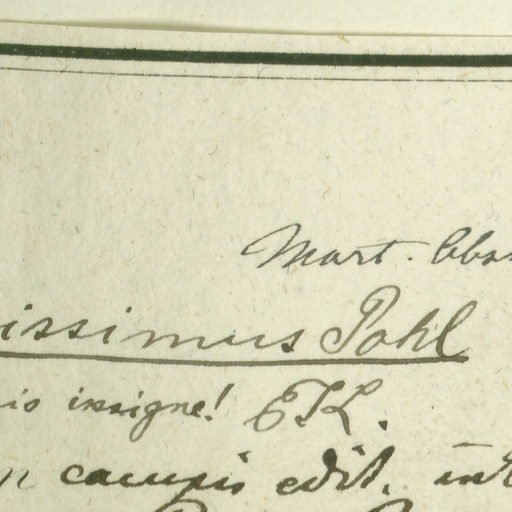 Mart. Obs
issimus Pohl
io insigne! EK.
n campis edit. int